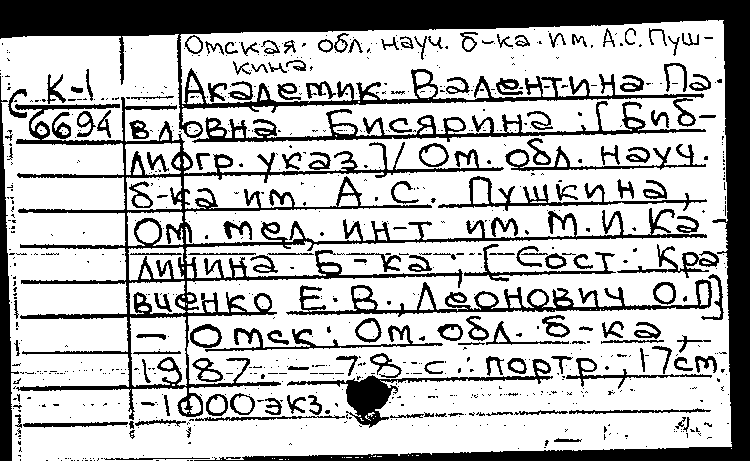 Омская обл. науч. б-ка им. А.С. Пуш-
кина.
К-1 Академик Валентина Па-
С 6694 вловна Бисярина : [Биб-
лиогр. указ.] / Ом. обл. науч.
б-ка им. А. С. Пушкина,
Ом. мед. ин-т им. М.И. Ка-
линина. Б-ка ; [Сост.: Кра
вченко Е. В., Леонович О.П]
— Омск : Ом. обл. б-ка,
1987. — 78 с. : портр., 17 см.
-1000 экз.